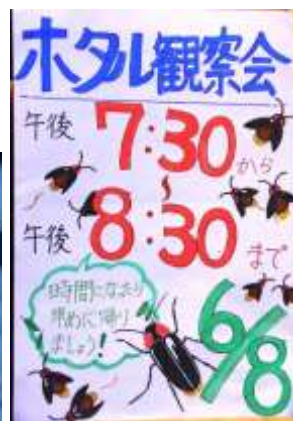 ホタル観察会
午後 7:30 から
～
午後 8:30 まで
時間になったら
早めに帰り
ましょう!
6/8